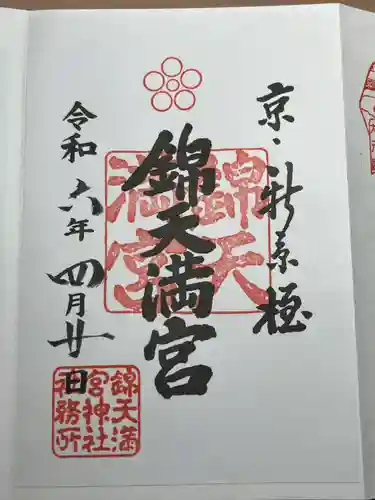 京・新京極
錦天満宮
錦天
満宮
令和六年四月廿日
錦天満
宮神社
務所